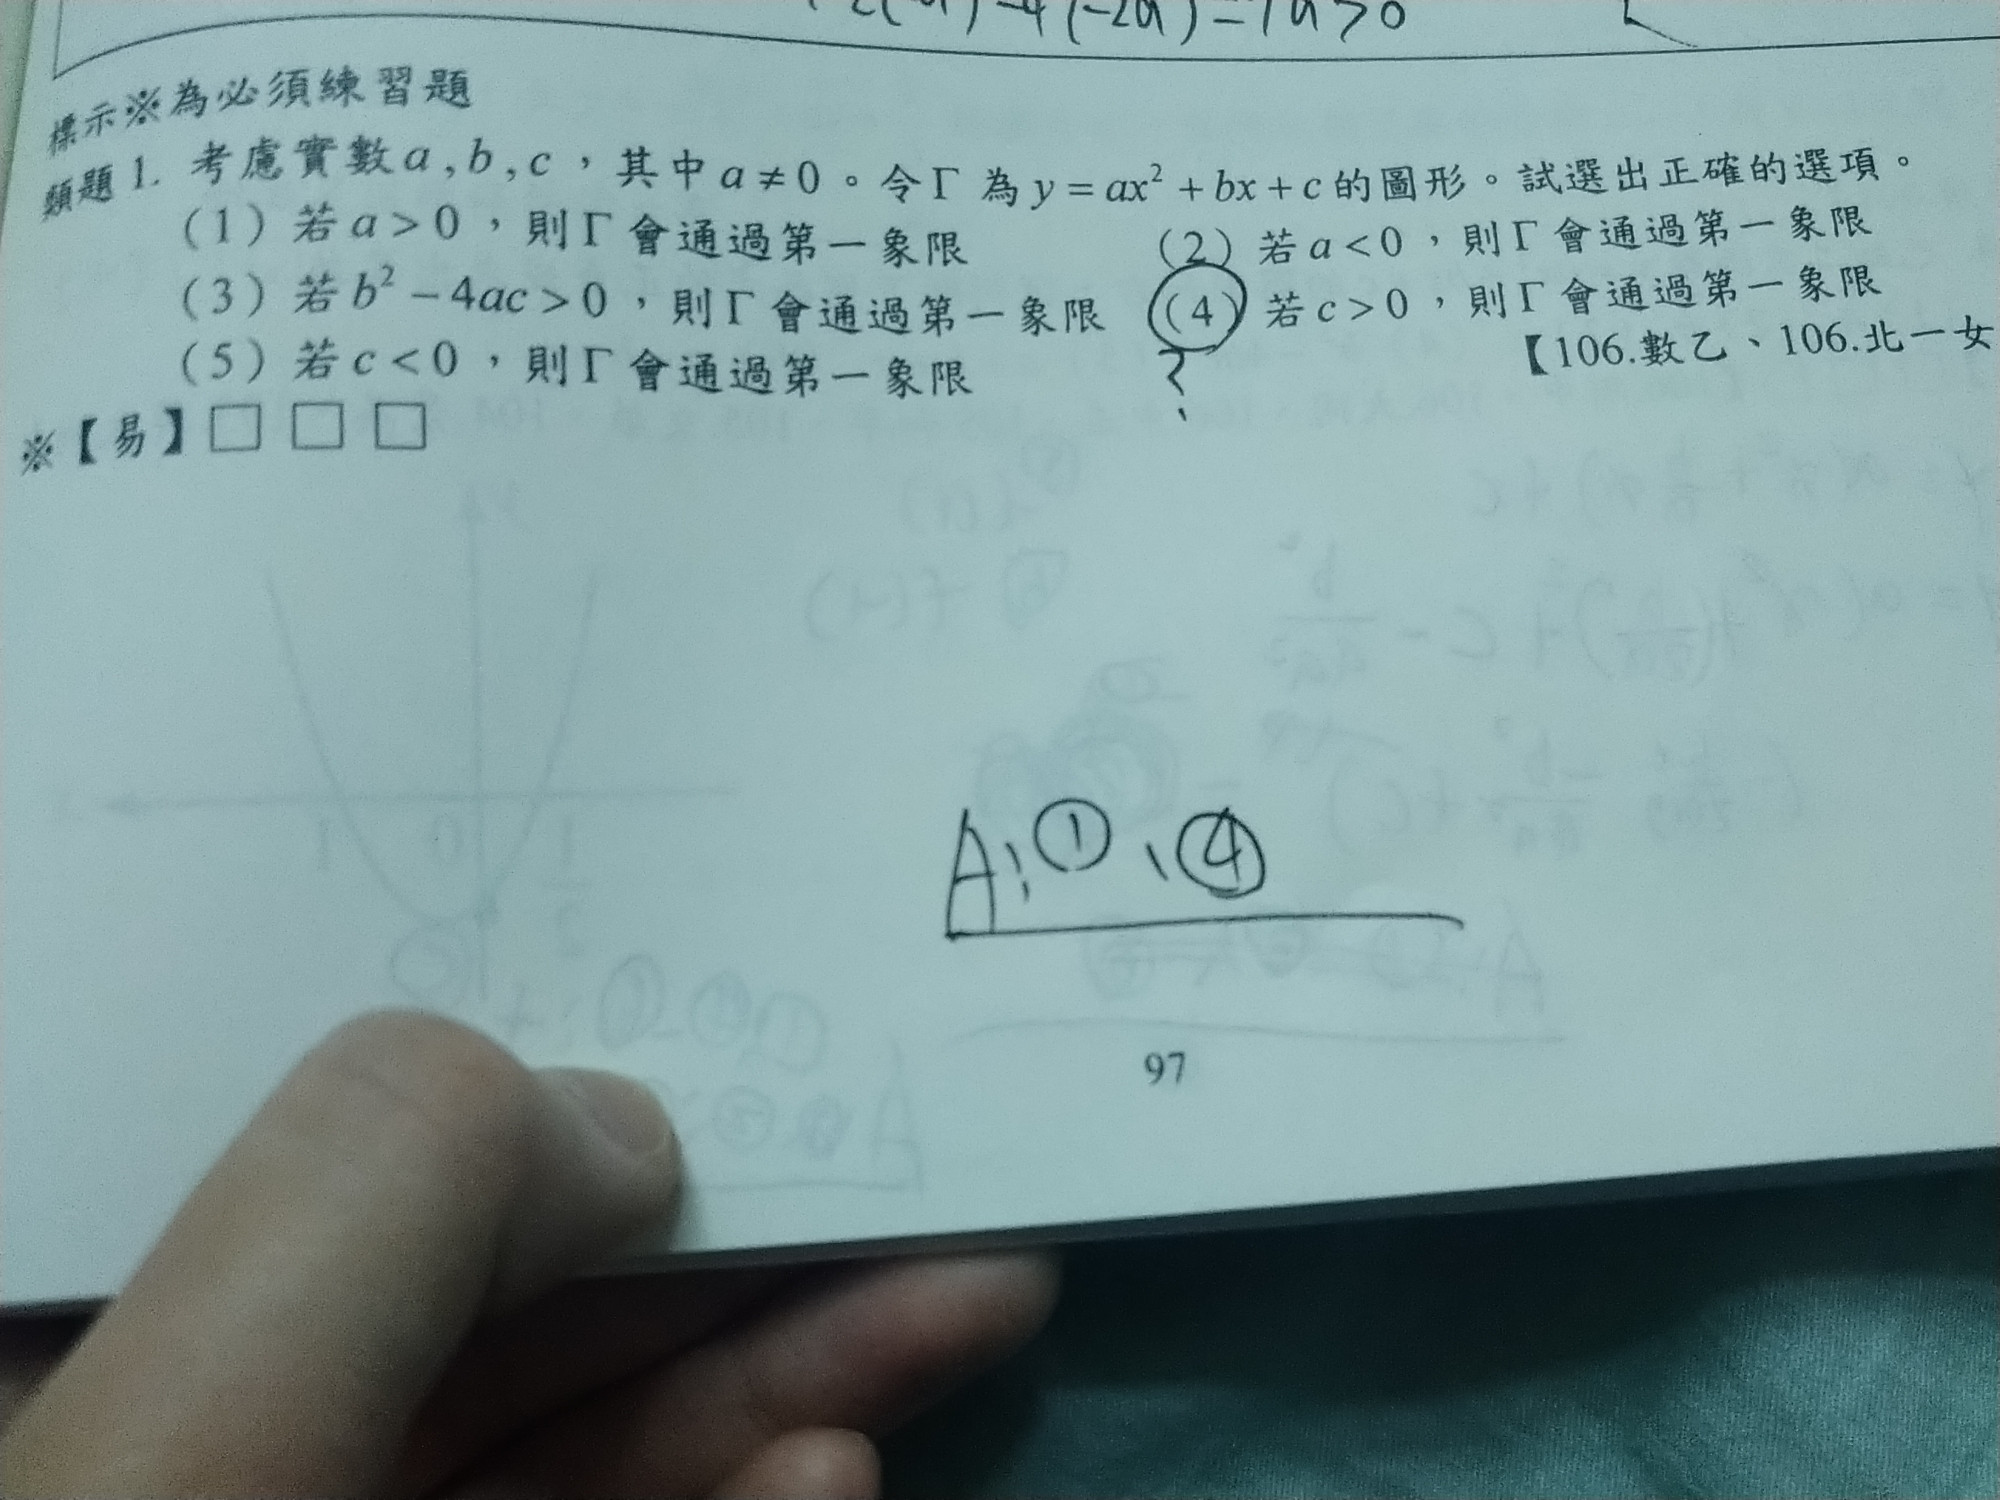 2(-a)-4(-2a)=7a>0
標示※為必須練習題
類題1. 考慮實數a,b,c，其中a≠0。令Γ為y=ax²+bx+c的圖形。試選出正確的選項。
(1) 若a>0，則Γ會通過第一象限 (2) 若a<0，則Γ會通過第一象限
(3) 若b²-4ac>0，則Γ會通過第一象限 (4) 若c>0，則Γ會通過第一象限
(5) 若c<0，則Γ會通過第一象限 ? 【106.數乙、106.北一女
※【易】□ □ □
A:①、④
97